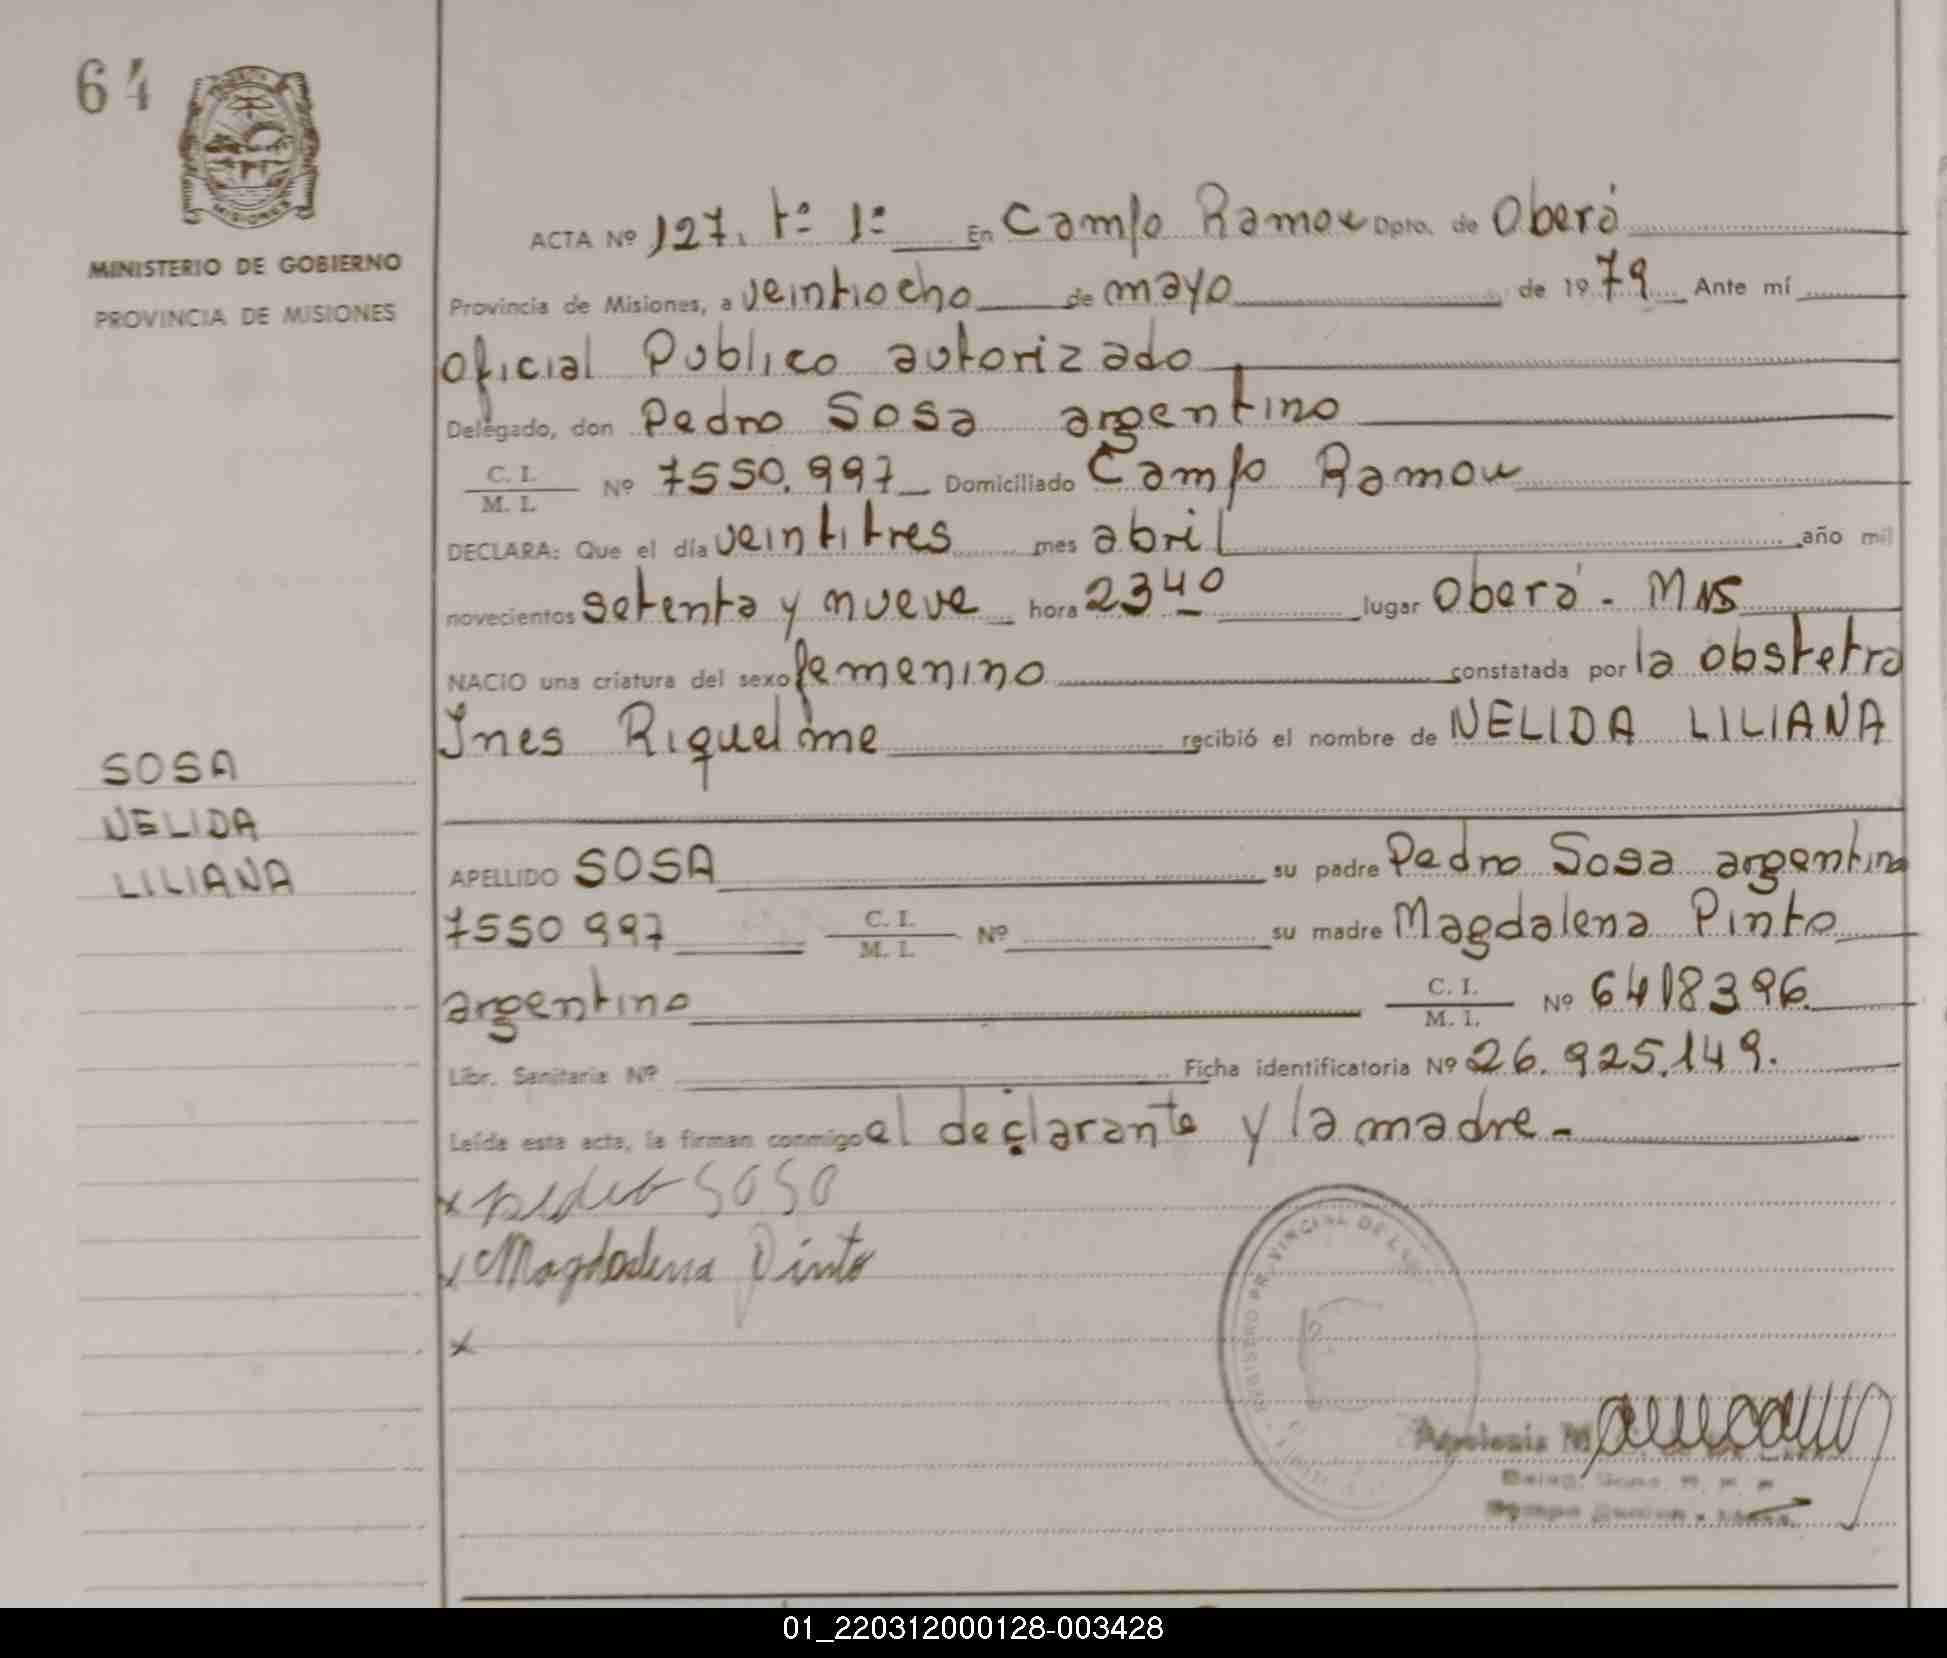 64
MINISTERIO DE GOBIERNO
PROVINCIA DE MISIONES
ACTA Nº 127. tº 1º En Campo Ramon Dpto. de Oberá
Provincia de Misiones, a veintiocho de mayo de 1979 Ante mí
oficial Publico autorizado
Delegado, don Pedro Sosa argentino
C. I. / M. I. Nº 7550.997 Domiciliado Campo Ramon
DECLARA: Que el día veintitres mes abril año mil
novecientos setenta y nueve hora 23 40 lugar Oberá - MNS
NACIO una criatura del sexo femenino constatada por la obstetra
Ines Riquelme recibió el nombre de NELIDA LILIANA
SOSA
NELIDA
LILIANA
APELLIDO SOSA su padre Pedro Sosa argentino
7550 997 C. I. / M. I. Nº su madre Magdalena Pinto
argentino C. I. / M. I. Nº 6418396.
Libr. Sanitaria Nº Ficha identificatoria Nº 26.925.149.
Leída esta acta, la firman conmigo el declarante y la madre.-
x pedro SOSA
x Magdalena Pinto
x
REGISTRO PROVINCIAL DE LAS
01_220312000128-003428